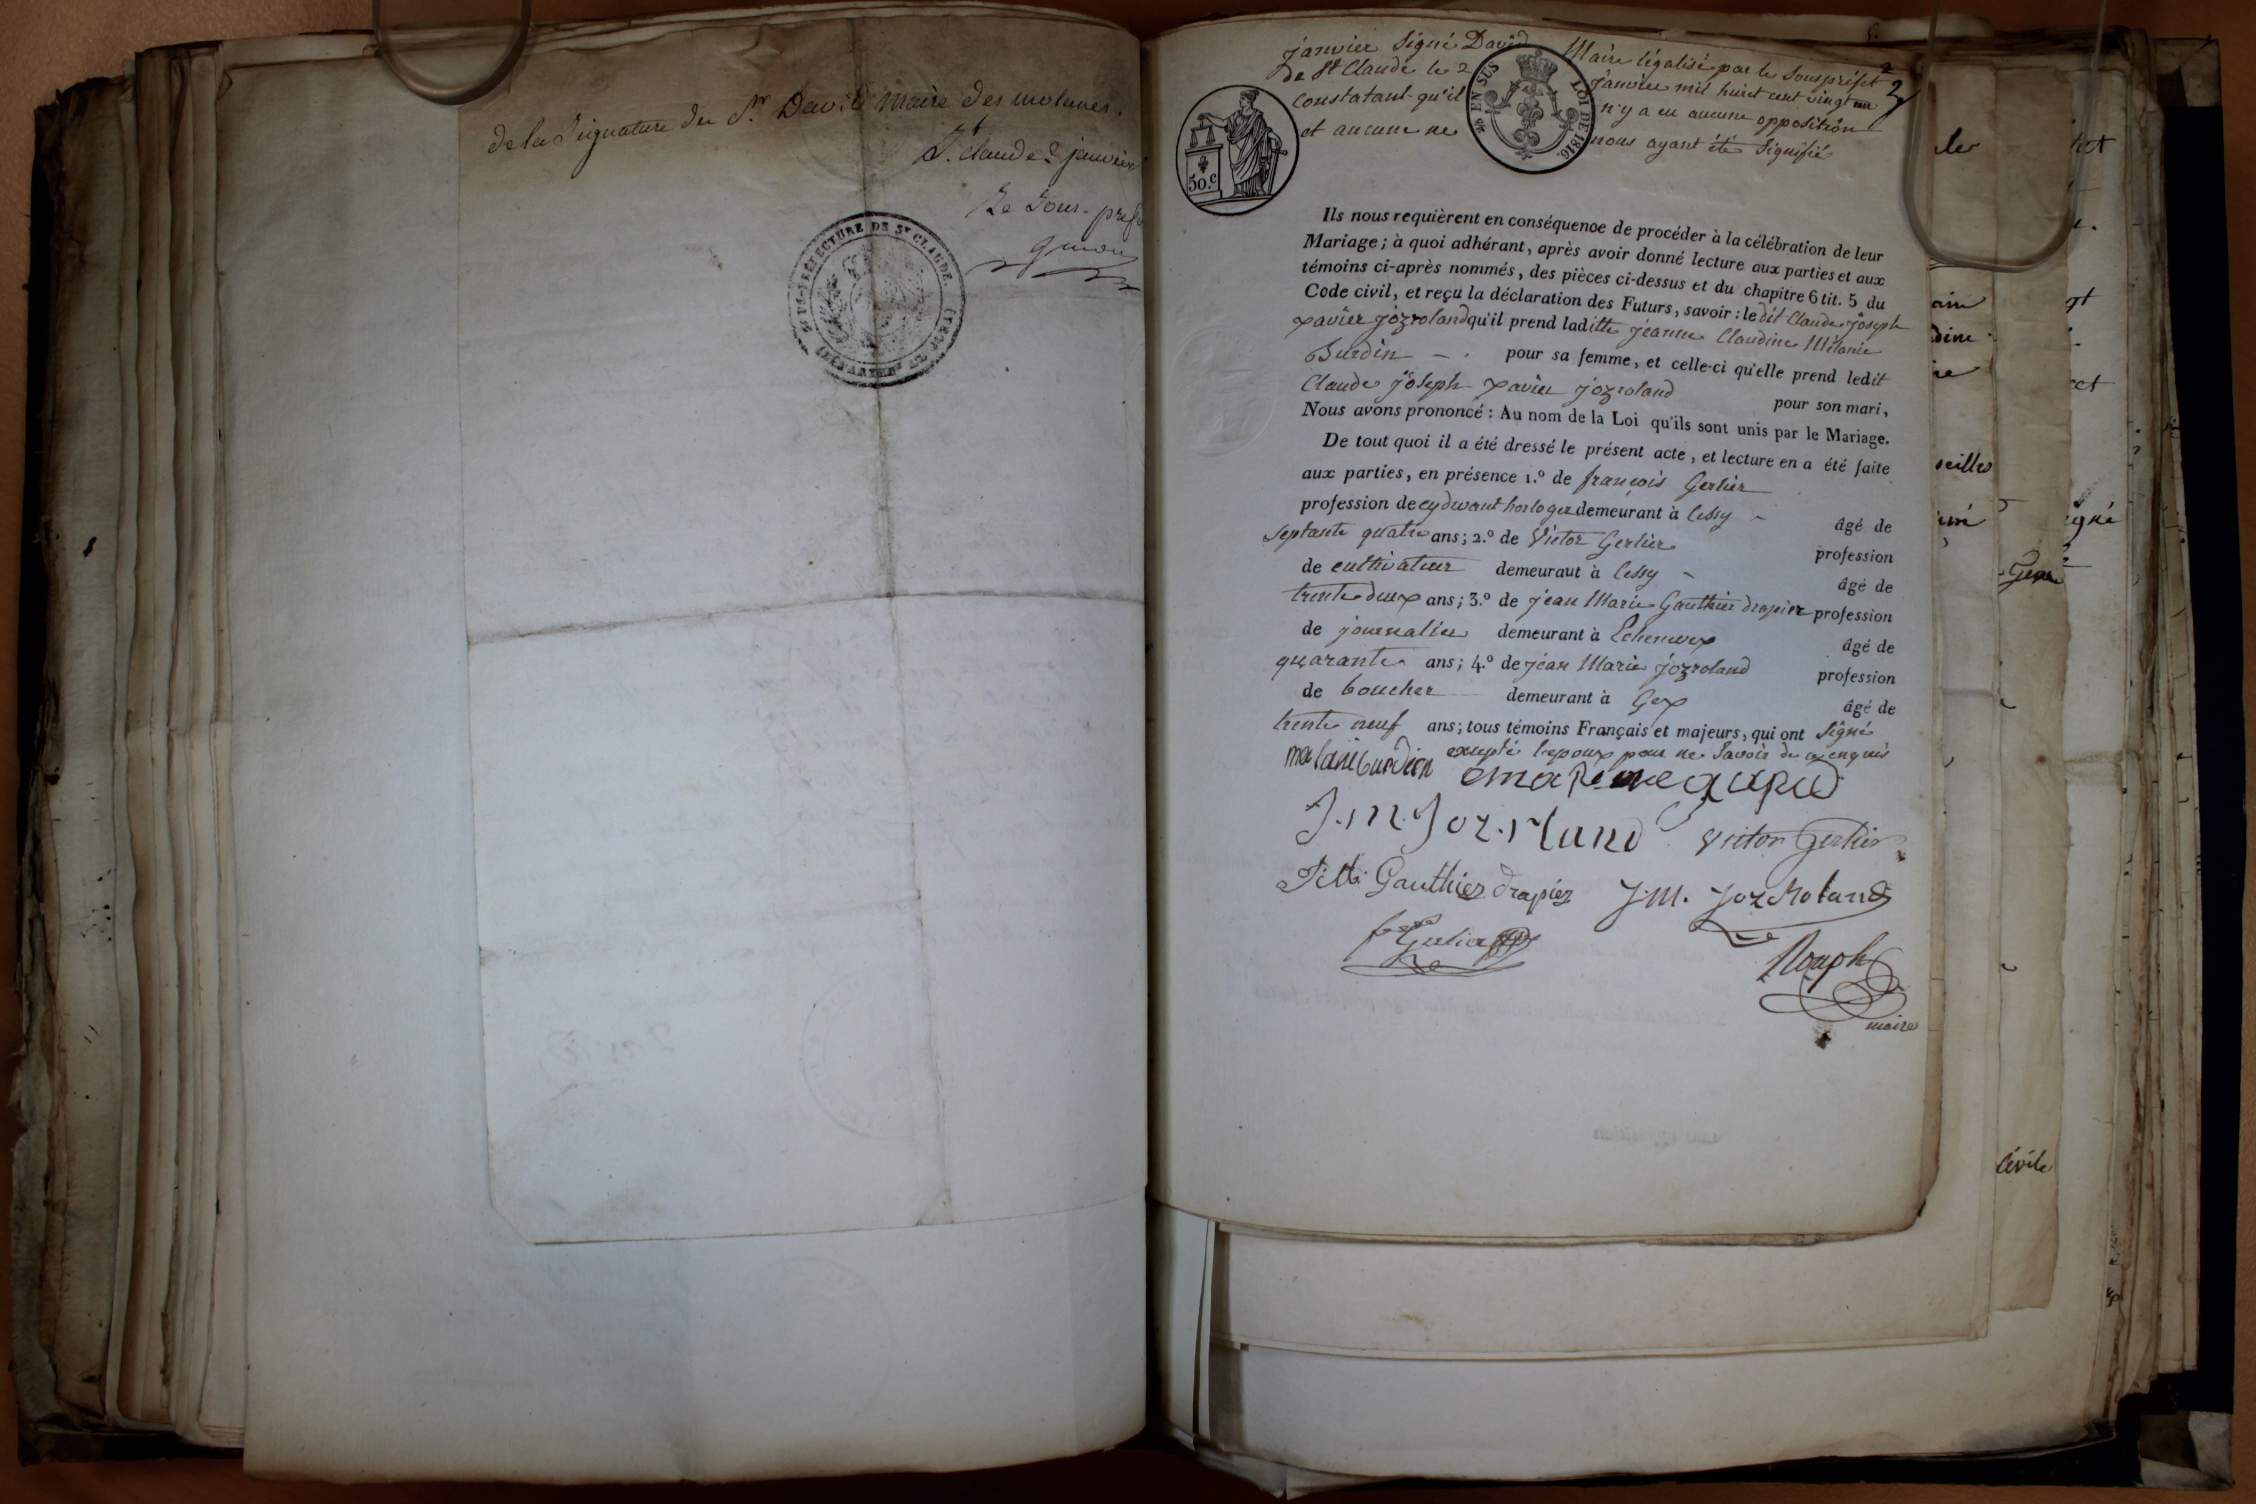 de la Signature du Sr. David maire des molunes.
St. Claude 2 janvier
Le Sous-préf
SOUS-PRÉFECTURE DE ST CLAUDE. (JURA)
janvier Signé David Maire légalisé par le Souspréfet
De St Claude le 2 Janvier mil huit cent vingt un
constatant qu'il n'y a eu aucune opposition
et aucune ne nous ayant été Signifié
EN SUS LOI DE 1816.
50.c
Ils nous requièrent en conséquence de procéder à la célébration de leur
Mariage; à quoi adhérant, après avoir donné lecture aux parties et aux
témoins ci-après nommés, des pièces ci-dessus et du chapitre 6 tit. 5 du
Code civil, et reçu la déclaration des Futurs, savoir: le dit Claude joseph
xavier jozroland qu'il prend laditte jeanne Claudine Mélanie
Burdin - . pour sa femme, et celle-ci qu'elle prend ledit
Claude joseph xavier jozroland pour son mari,
Nous avons prononcé: Au nom de la Loi qu'ils sont unis par le Mariage.
De tout quoi il a été dressé le présent acte, et lecture en a été faite
aux parties, en présence 1.º de françois Gerlier
profession de cydevant horloger demeurant à Cessy - âgé de
septante quatre ans; 2.º de Victor Gerlier profession
de cultivateur demeurant à Cessy - âgé de
trente deux ans; 3.º de jean Marie Gauthier drapier profession
de journalier demeurant à Echenevex âgé de
quarante ans; 4.º de jean Marie jozroland profession
de boucher demeurant à Gex âgé de
trente neuf ans; tous témoins Français et majeurs, qui ont Signé
excepté l'epoux pour ne Savoir de ce enquis
melani burdin
J.M. Joz.rland Victor Gerlier
J.M. Gauthier drapier J.M. Joz Roland
Gerlier
maire
civile